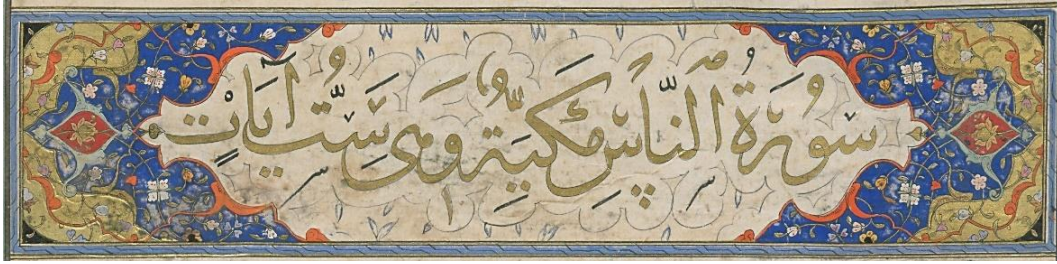 سُورَةُ النَّاسِ مَكِّيَّةٌ وَهِيَ سِتُّ آيَاتٍ